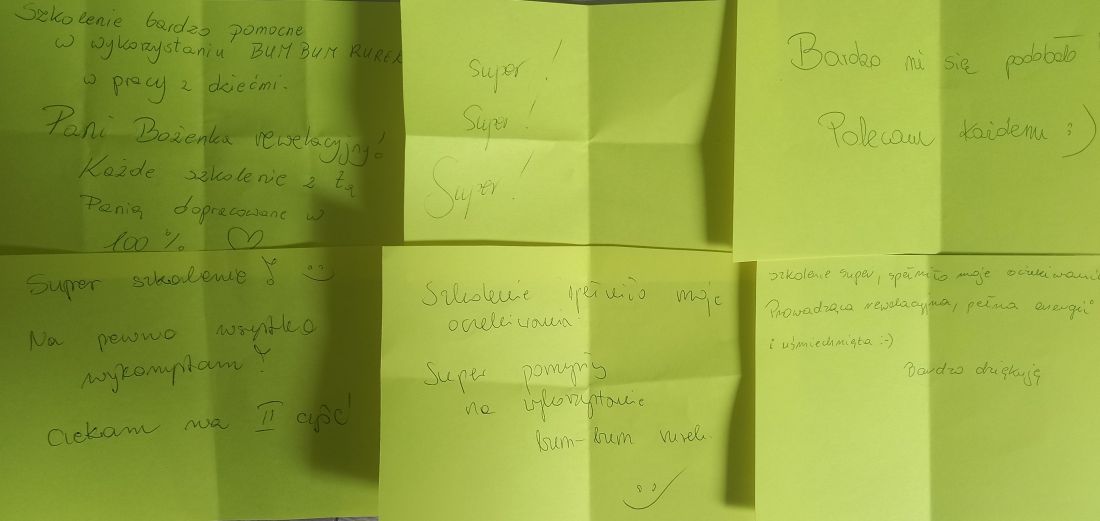 Szkolenie bardzo pomocne
w wykorzystaniu BUM BUM RUREK
w pracy z dziećmi.
Pani Bożenka rewelacyjny!
Każde szkolenie z tą
Panią dopracowane w
100 % ♡
Super!
Super!
Super!
Bardzo mi się podobało
Polecam każdemu :)
Super szkolenie! :)
Na pewno wszystko
wykorzystam!
Czekam na II część!
Szkolenie spełniło moje
oczekiwania!
Super pomysły
na wykorzystanie
bum-bum rurek.
szkolenie super, spełniło moje oczekiwania
Prowadząca rewelacyjna, pełna energii
i uśmiechnięta :-)
Bardzo dziękuję